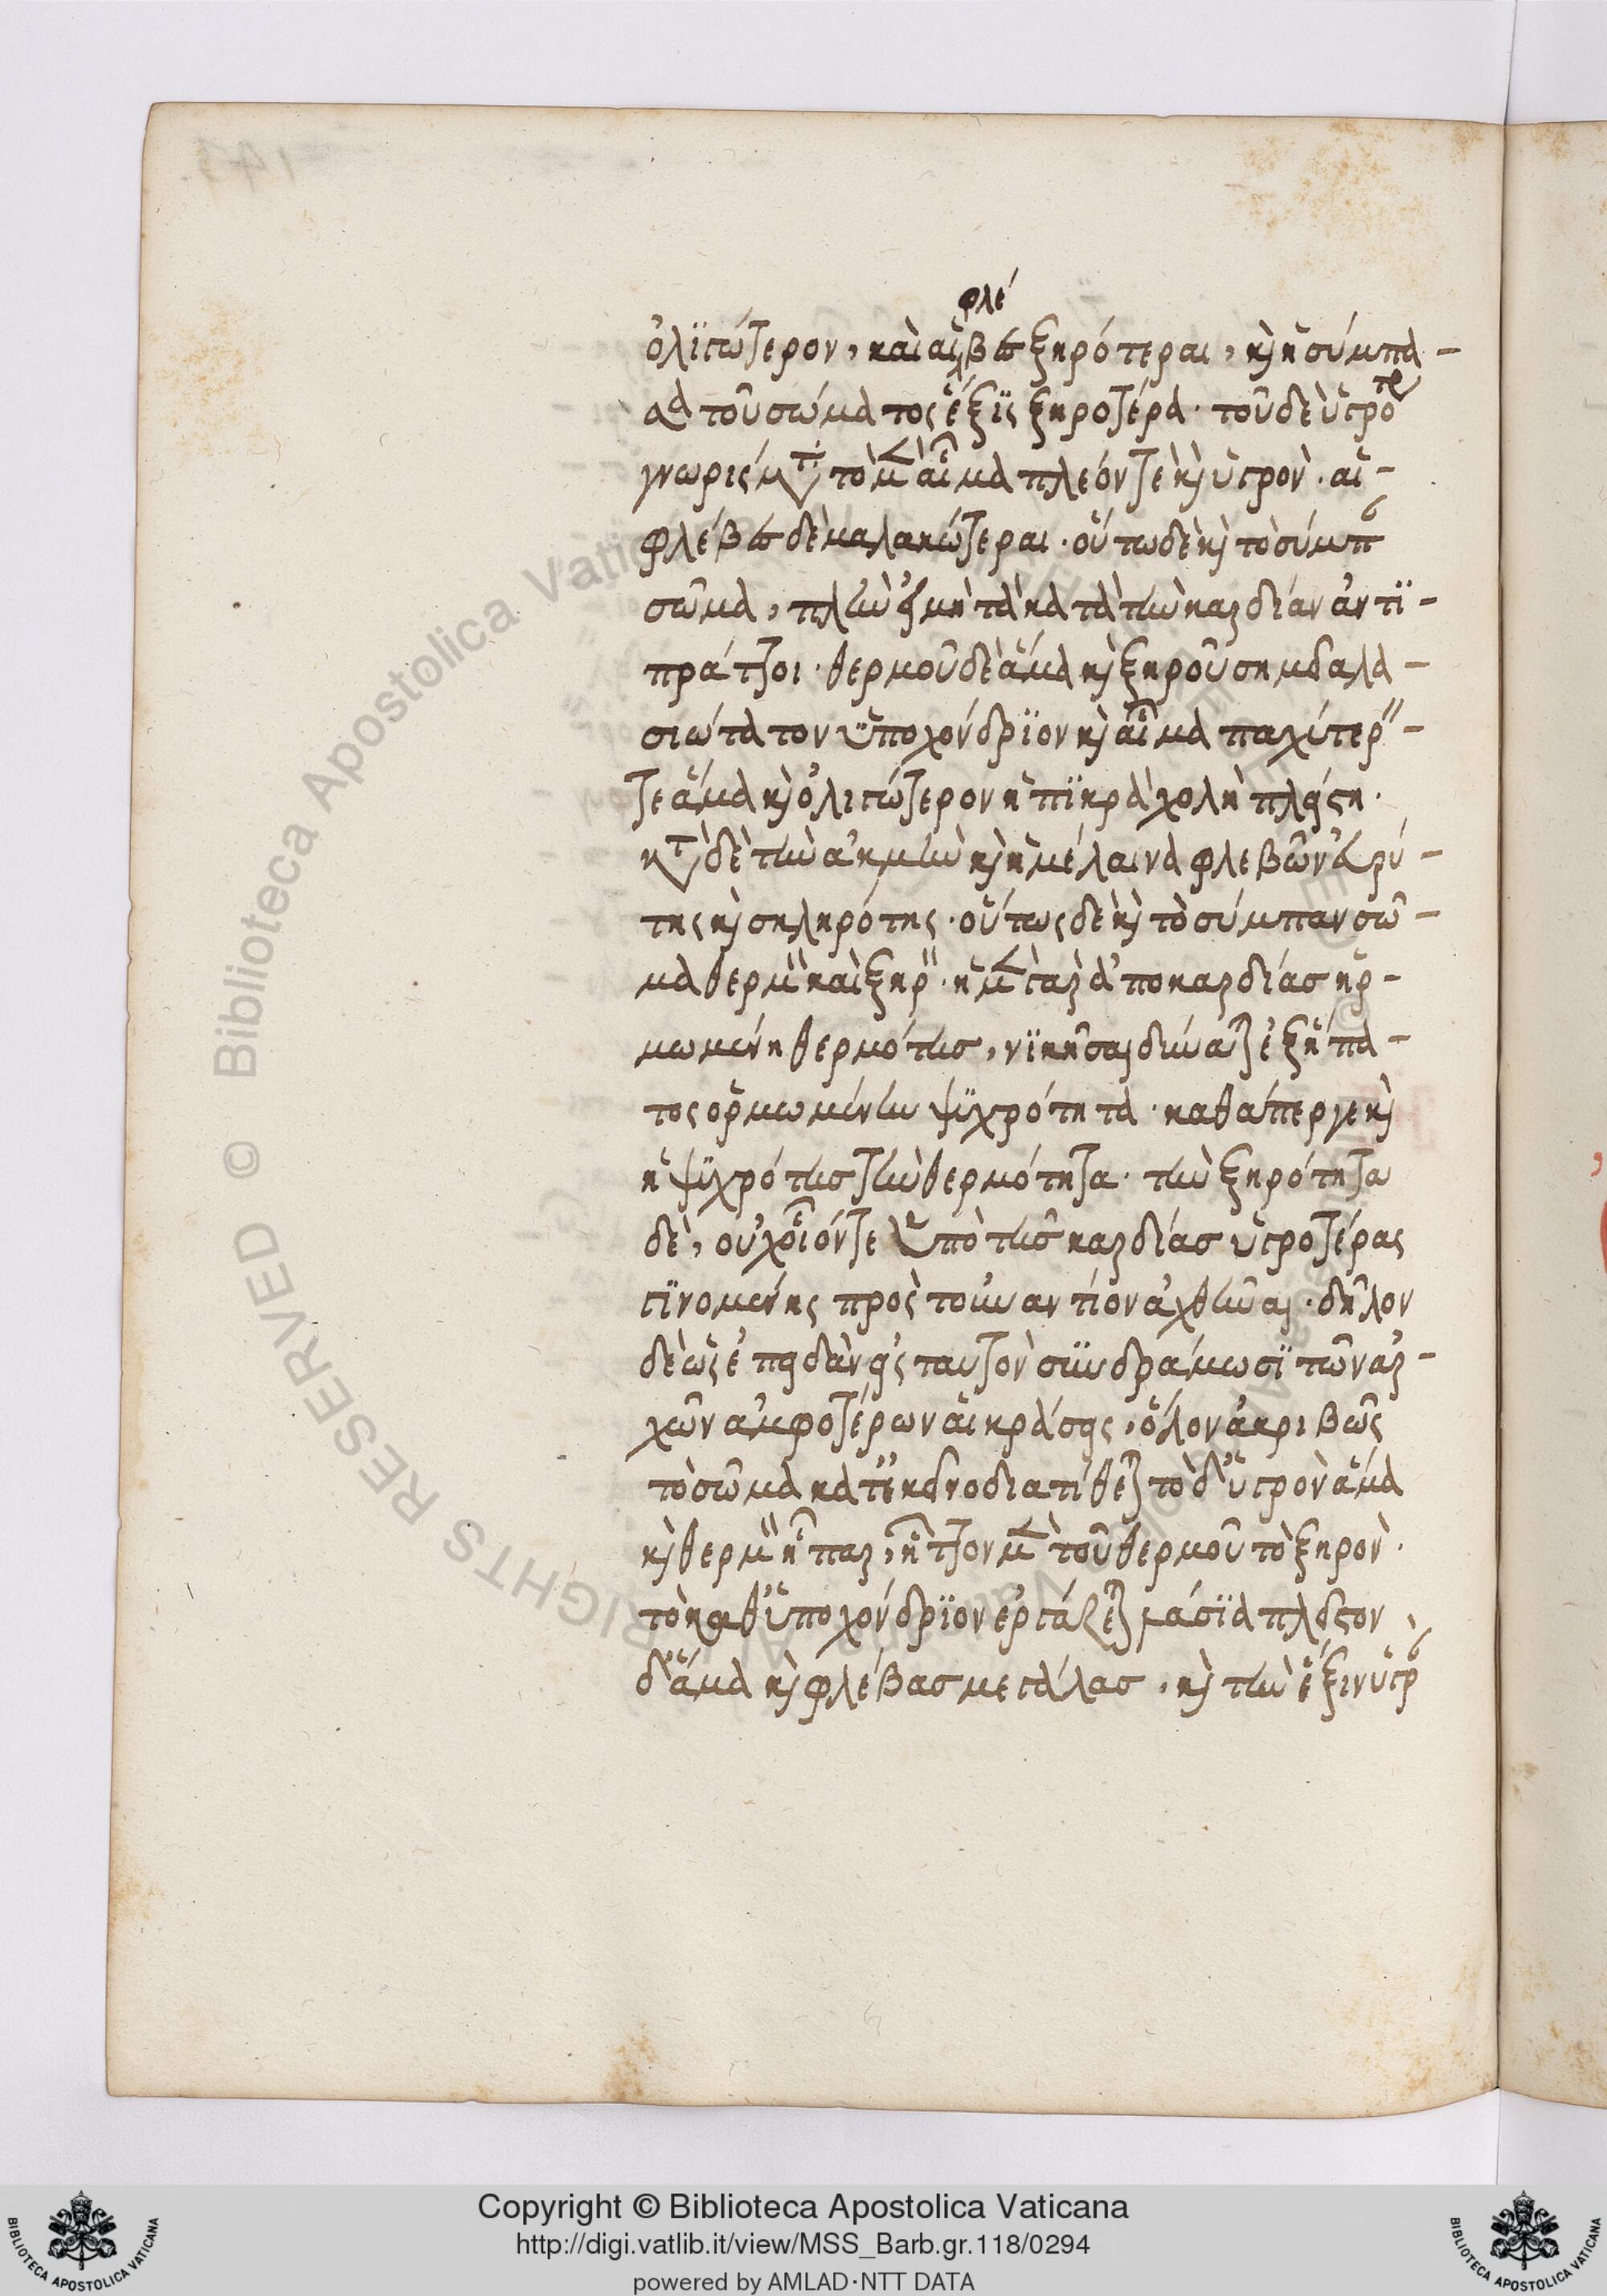 φλέ
ὀλιγώτερον, καὶ αἱ βες ξηρότεραι, κὴ ἡ σύμπα-
σα τοῦ σώματος ἕξις ξηροτέρα. τοῦ δὲ ὑγροτέρου
γνωρίσματα τὸ μὲν αἷμα πλέον τε κὴ ὑγρὸν. αἱ-
φλέβες δὲ μαλακώτεραι. οὕτω δὲ κὴ τὸ σύμπαν
σῶμα, πλὴν εἰ μὴ τὰ κατὰ τὴν καρδίαν ἀντι-
πράττοι. θερμοῦ δὲ ἅμα κὴ ξηροῦ σημεῖα δα-
σιώτατον ὑποχόνδριον κὴ αἷμα παχύτερον-
τε ἅμα κὴ ὀλιγώτερον ἡ πικρὰ χολὴ πλείστη.
κατὰ δὲ τὴν ἀκμὴν κὴ ἡ μέλαινα φλεβῶν εὐρύ-
της κὴ σκληρότης. οὕτως δὲ κὴ τὸ σύμπαν σῶ-
μα θερμὸν καὶ ξηρὸν. ἡ μὲν γὰρ ἀπὸ καρδίας ἡρ-
μωμένη θερμότης, νικῆσαι δύναται ἐξ ἥπα-
τος ὁρμωμένην ψυχρότητα. καθάπερ γε κὴ
ἡ ψυχρότης τὴν θερμότητα. τὴν ξηρότητα
δὲ, οὐχ οἷόν τε ὑπὸ τῆς καρδίας ὑγροτέρας
γινομένης πρὸς τοὐναντίον ἀχθῆναι. δῆλον
δὲ ὡς ἐπειδὰν εἰς ταυτὸν συνδράμωσι τῶν ἀρ-
χῶν ἀμφοτέρων αἱ κράσεις, ὅλον ἀκριβῶς
τὸ σῶμα κατ' ἐκεῖνο διατίθεται τὸ δ' ὑγρὸν ἅμα
κὴ θερμὸν ἧπαρ, ἧττον μὲν τοῦ θερμοῦ τὸ ξηρὸν.
τὸ καθ' ὑποχόνδριον ἐργάζεται δάσια πλεῖστον
δ' ἅμα κὴ φλέβας μεγάλας, κὴ τὴν ἕξιν ὑγρὰν
Copyright © Biblioteca Apostolica Vaticana
http://digi.vatlib.it/view/MSS_Barb.gr.118/0294
powered by AMLAD·NTT DATA